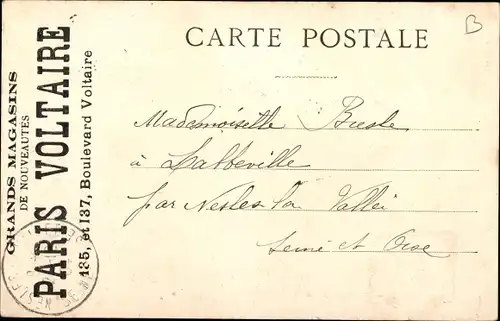 CARTE POSTALE
B
GRANDS MAGASINS
DE NOUVEAUTÉS
PARIS VOLTAIRE
135, et 137, Boulevard Voltaire
Mademoiselle
à Labbeville
par Nesles la Vallée
Seine et Oise